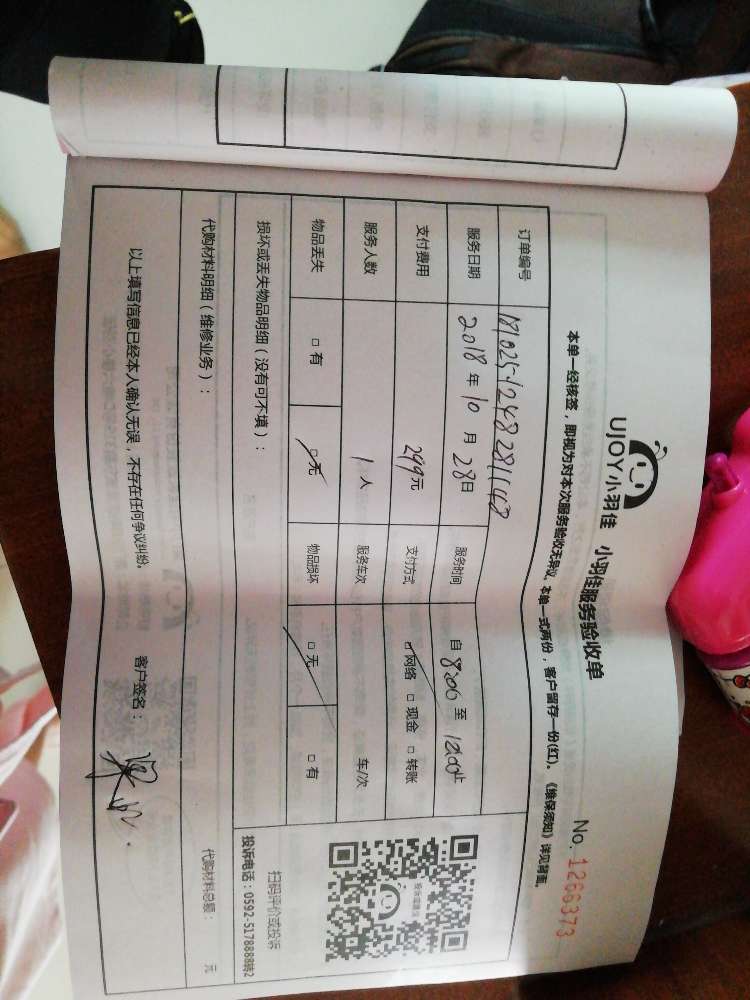 UJOY小羽佳 小羽佳服务验收单
No. 1266373
本单一经核签，即视为对本次服务验收无异议，本单一式两份，客户留存一份(红)。《维保须知》详见背面。
订单编号
服务日期 2018年10月28日 服务时间 自 8:00 至 12:00止
支付费用 299元 支付方式 □网络 □现金 □转账
服务人数 1人 服务车次 车/次
物品丢失 □有 □无 物品损坏 □无 □有
损坏或丢失物品明细（没有可不填）：
扫码评价或投诉
投诉电话：0592-5178888转2
代购材料明细（维修业务）：
代购材料总额： 元
以上填写信息已经本人确认无误，不存在任何争议纠纷。 客户签名：